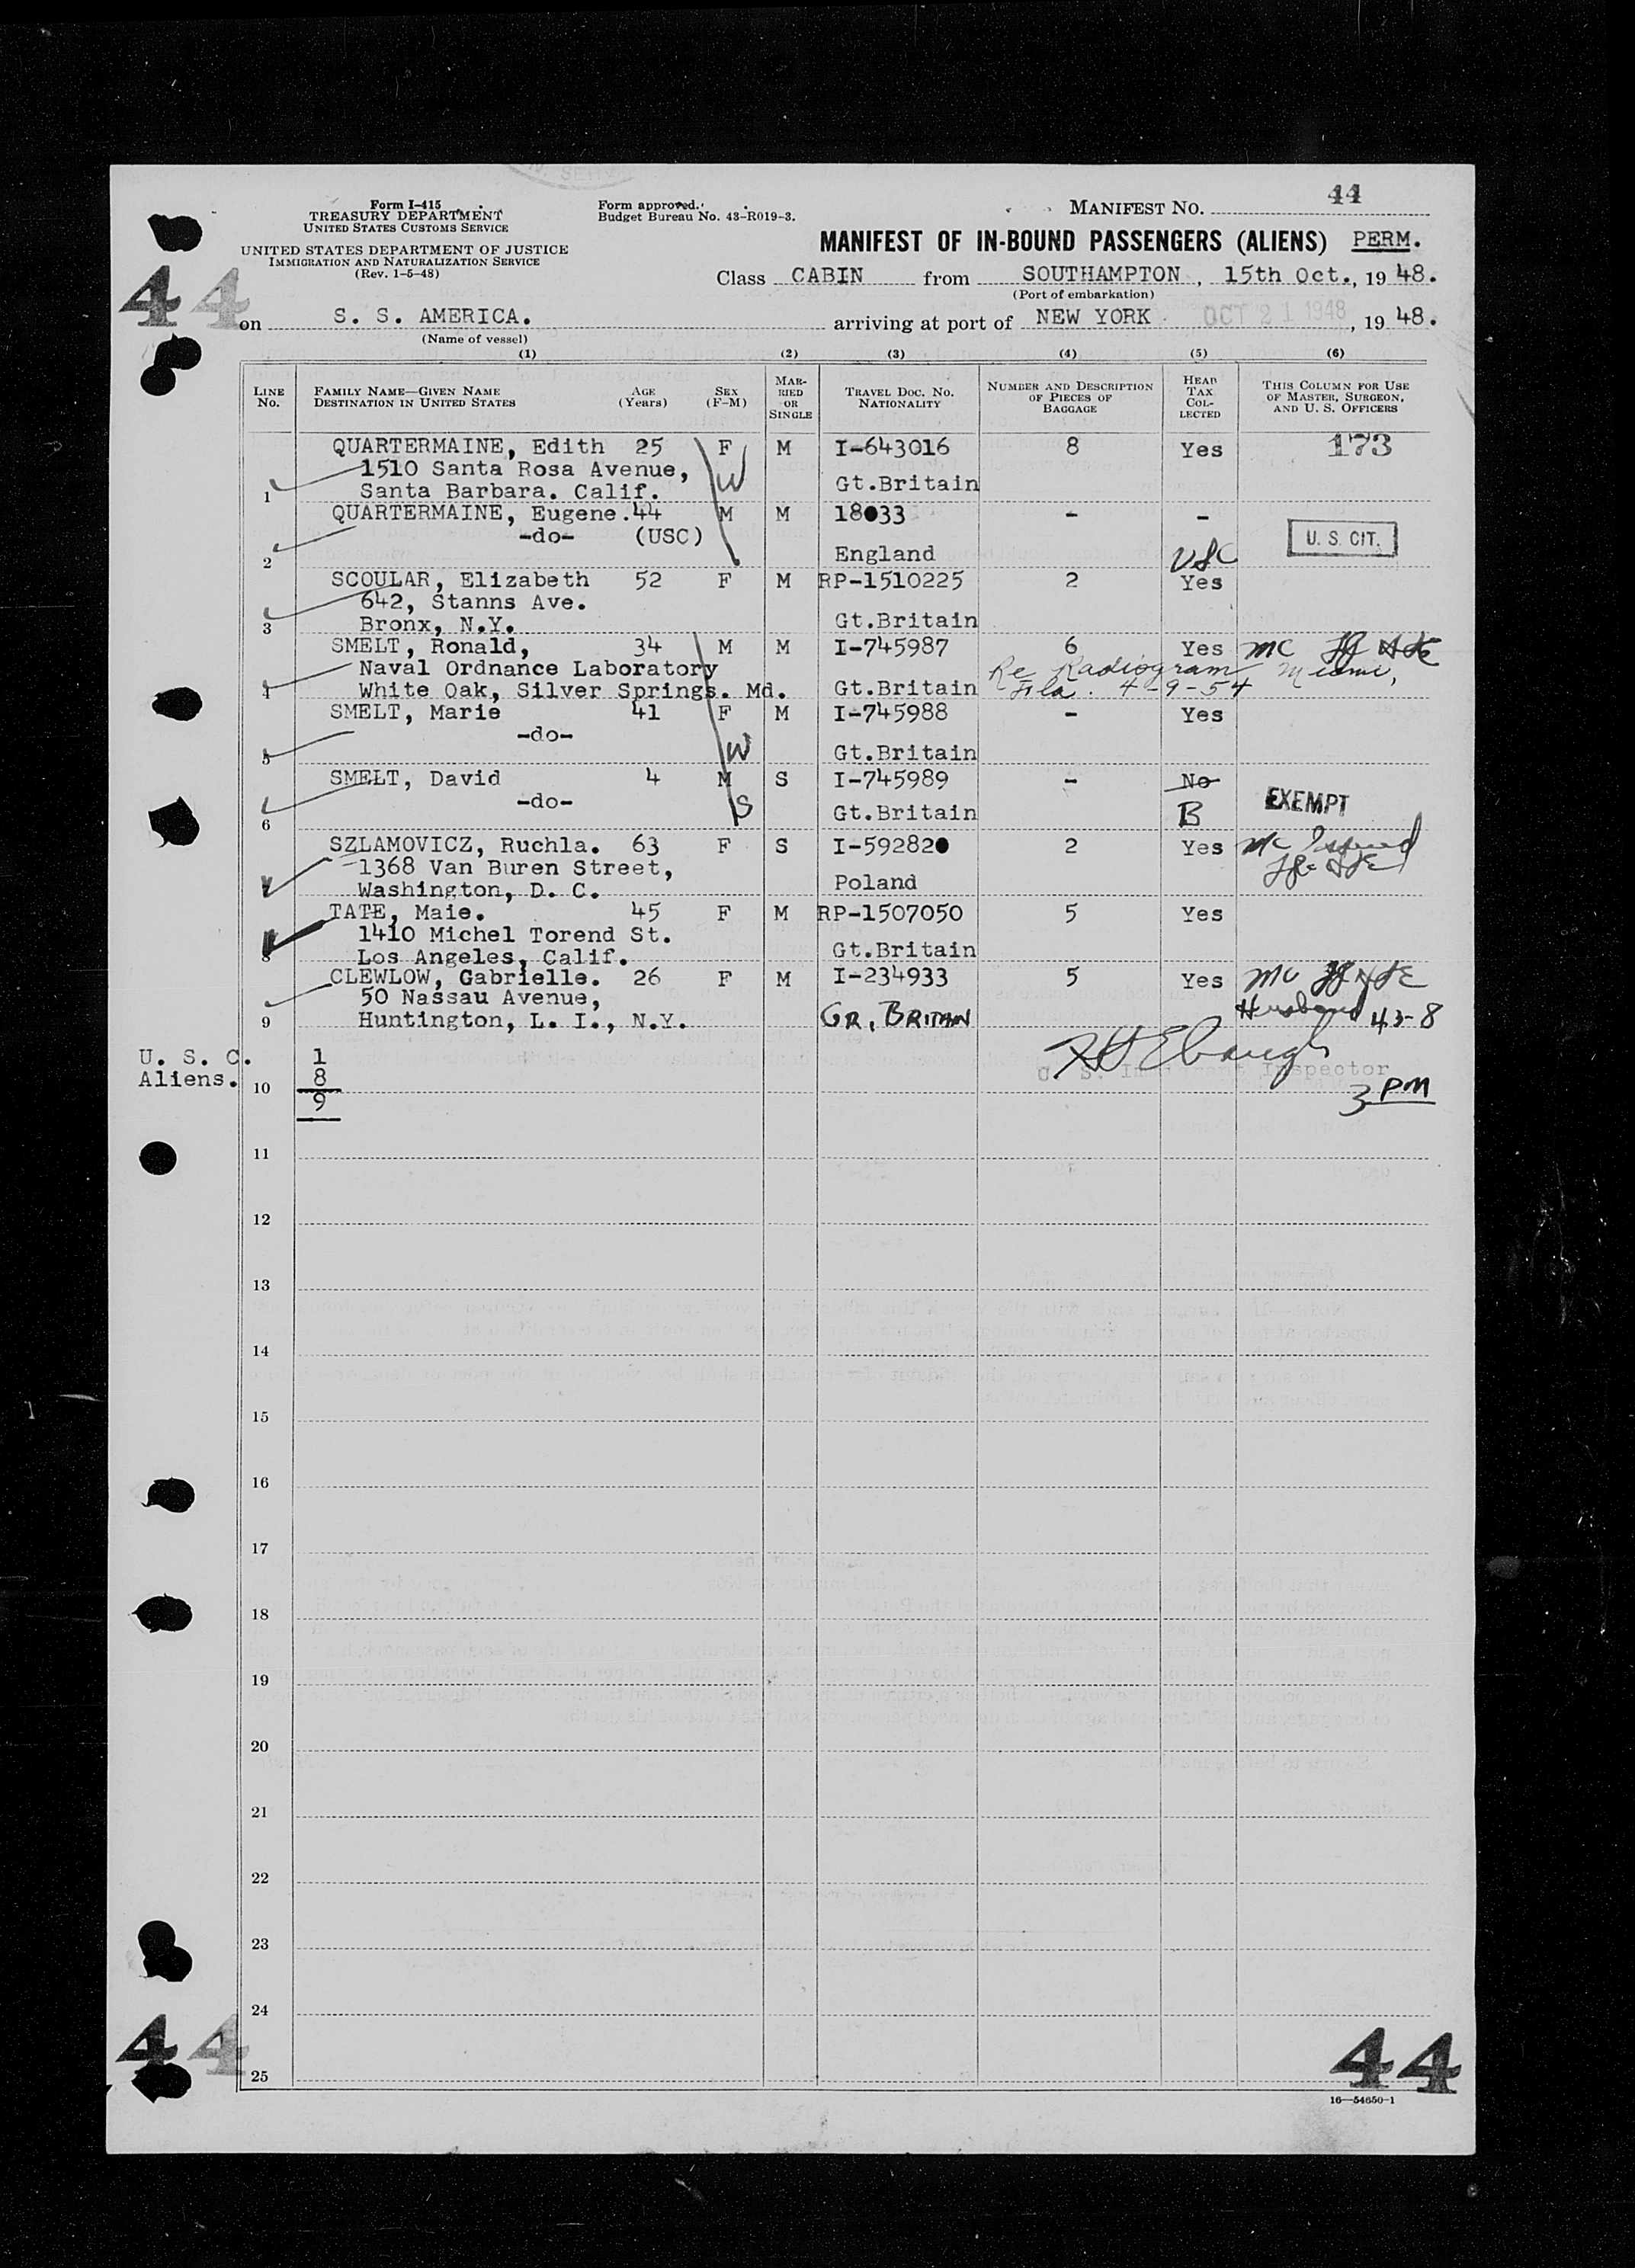 44
Form I-415
TREASURY DEPARTMENT
UNITED STATES CUSTOMS SERVICE
UNITED STATES DEPARTMENT OF JUSTICE
IMMIGRATION AND NATURALIZATION SERVICE
(Rev. 1-5-48)
Form approved.
Budget Bureau No. 43-R019-3.
MANIFEST NO. 44
MANIFEST OF IN-BOUND PASSENGERS (ALIENS) PERM.
Class CABIN from SOUTHAMPTON, 15th Oct., 19 48.
(Port of embarkation)
on S. S. AMERICA. arriving at port of NEW YORK OCT 21 1948, 19 48.
(Name of vessel)
(1) (2) (3) (4) (5) (6)
LINE No. FAMILY NAME—GIVEN NAME DESTINATION IN UNITED STATES AGE (Years) SEX (F-M) MARRIED OR SINGLE TRAVEL DOC. NO. NATIONALITY NUMBER AND DESCRIPTION OF PIECES OF BAGGAGE HEAD TAX COLLECTED THIS COLUMN FOR USE OF MASTER, SURGEON, AND U. S. OFFICERS
QUARTERMAINE, Edith 25 F M I-643016 8 Yes 173
1510 Santa Rosa Avenue, W
1 Santa Barbara. Calif. Gt.Britain
QUARTERMAINE, Eugene.44 M M 18033 - - U. S. CIT.
-do- (USC)
2 England USC
SCOULAR, Elizabeth 52 F M RP-1510225 2 Yes
642, Stanns Ave.
3 Bronx, N.Y. Gt.Britain
SMELT, Ronald, 34 M M I-745987 6 Yes MC
Naval Ordnance Laboratory Re Radiogram Miami,
4 White Oak, Silver Springs. Md. Gt.Britain Fla. 4-9-54
SMELT, Marie 41 F M I-745988 - Yes
-do-
5 W Gt.Britain
SMELT, David 4 M S I-745989 - No
-do- S Gt.Britain B EXEMPT
6
SZLAMOVICZ, Ruchla. 63 F S I-592820 2 Yes Mc
1368 Van Buren Street,
7 Washington, D. C. Poland
TATE, Maie. 45 F M RP-1507050 5 Yes
1410 Michel Torend St.
8 Los Angeles, Calif. Gt.Britain
CLEWLOW, Gabrielle. 26 F M I-234933 5 Yes MC
50 Nassau Avenue, Husband 43-8
9 Huntington, L. I., N.Y. GR, BRITAIN
U. S. C. 1
Aliens. 8
10 9
U. S. Immigrant Inspector
3 PM
11
12
13
14
15
16
17
18
19
20
21
22
23
24
25
44
44
16—54650-1